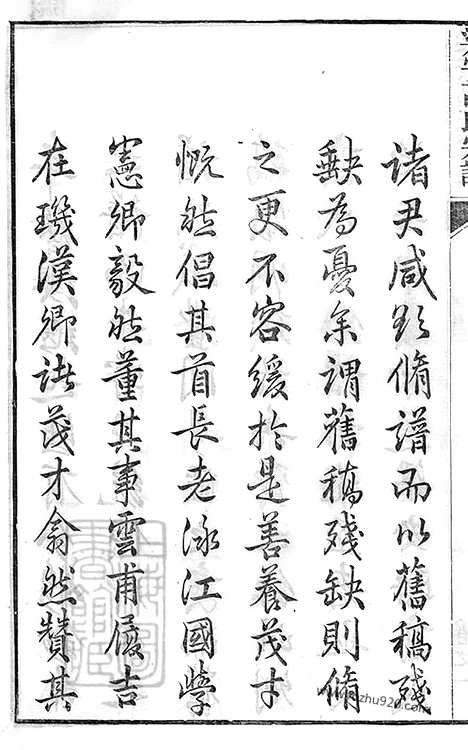 諸尹咸欲脩譜而以舊稿殘
缺為憂余謂舊稿殘缺則脩
之更不容緩於是善養茂才
慨然倡其首長老泳江國學
憲卿毅然董其事雲甫履吉
在璣漢卿諸茂才翕然贊其